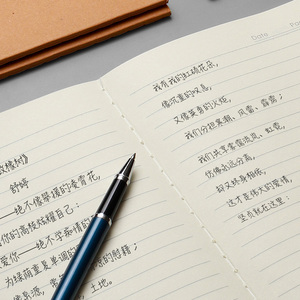 致橡树》
舒婷
—绝不像攀援的凌霄花,
你的高枝炫耀自己:
爱你—绝不学痴情的
为绿荫重复单调的
像泉源,
的慰籍;
土地。
Date
我有我的红硕花朵,
像沉重的叹息,
又像英勇的火炬,
我们分担寒潮、风雷、霹雳;
我们共享雾霭流岚、虹霓,
仿佛永远分离,
却又终身相依,
这才是伟大的爱情,
坚贞就在这里: